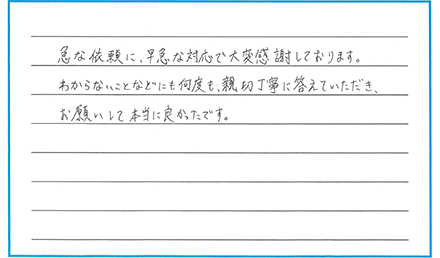 急な依頼に、早急な対応で大変感謝しております。
わからないことなどにも何度も、親切丁寧に答えていただき、
お願いして本当に良かったです。